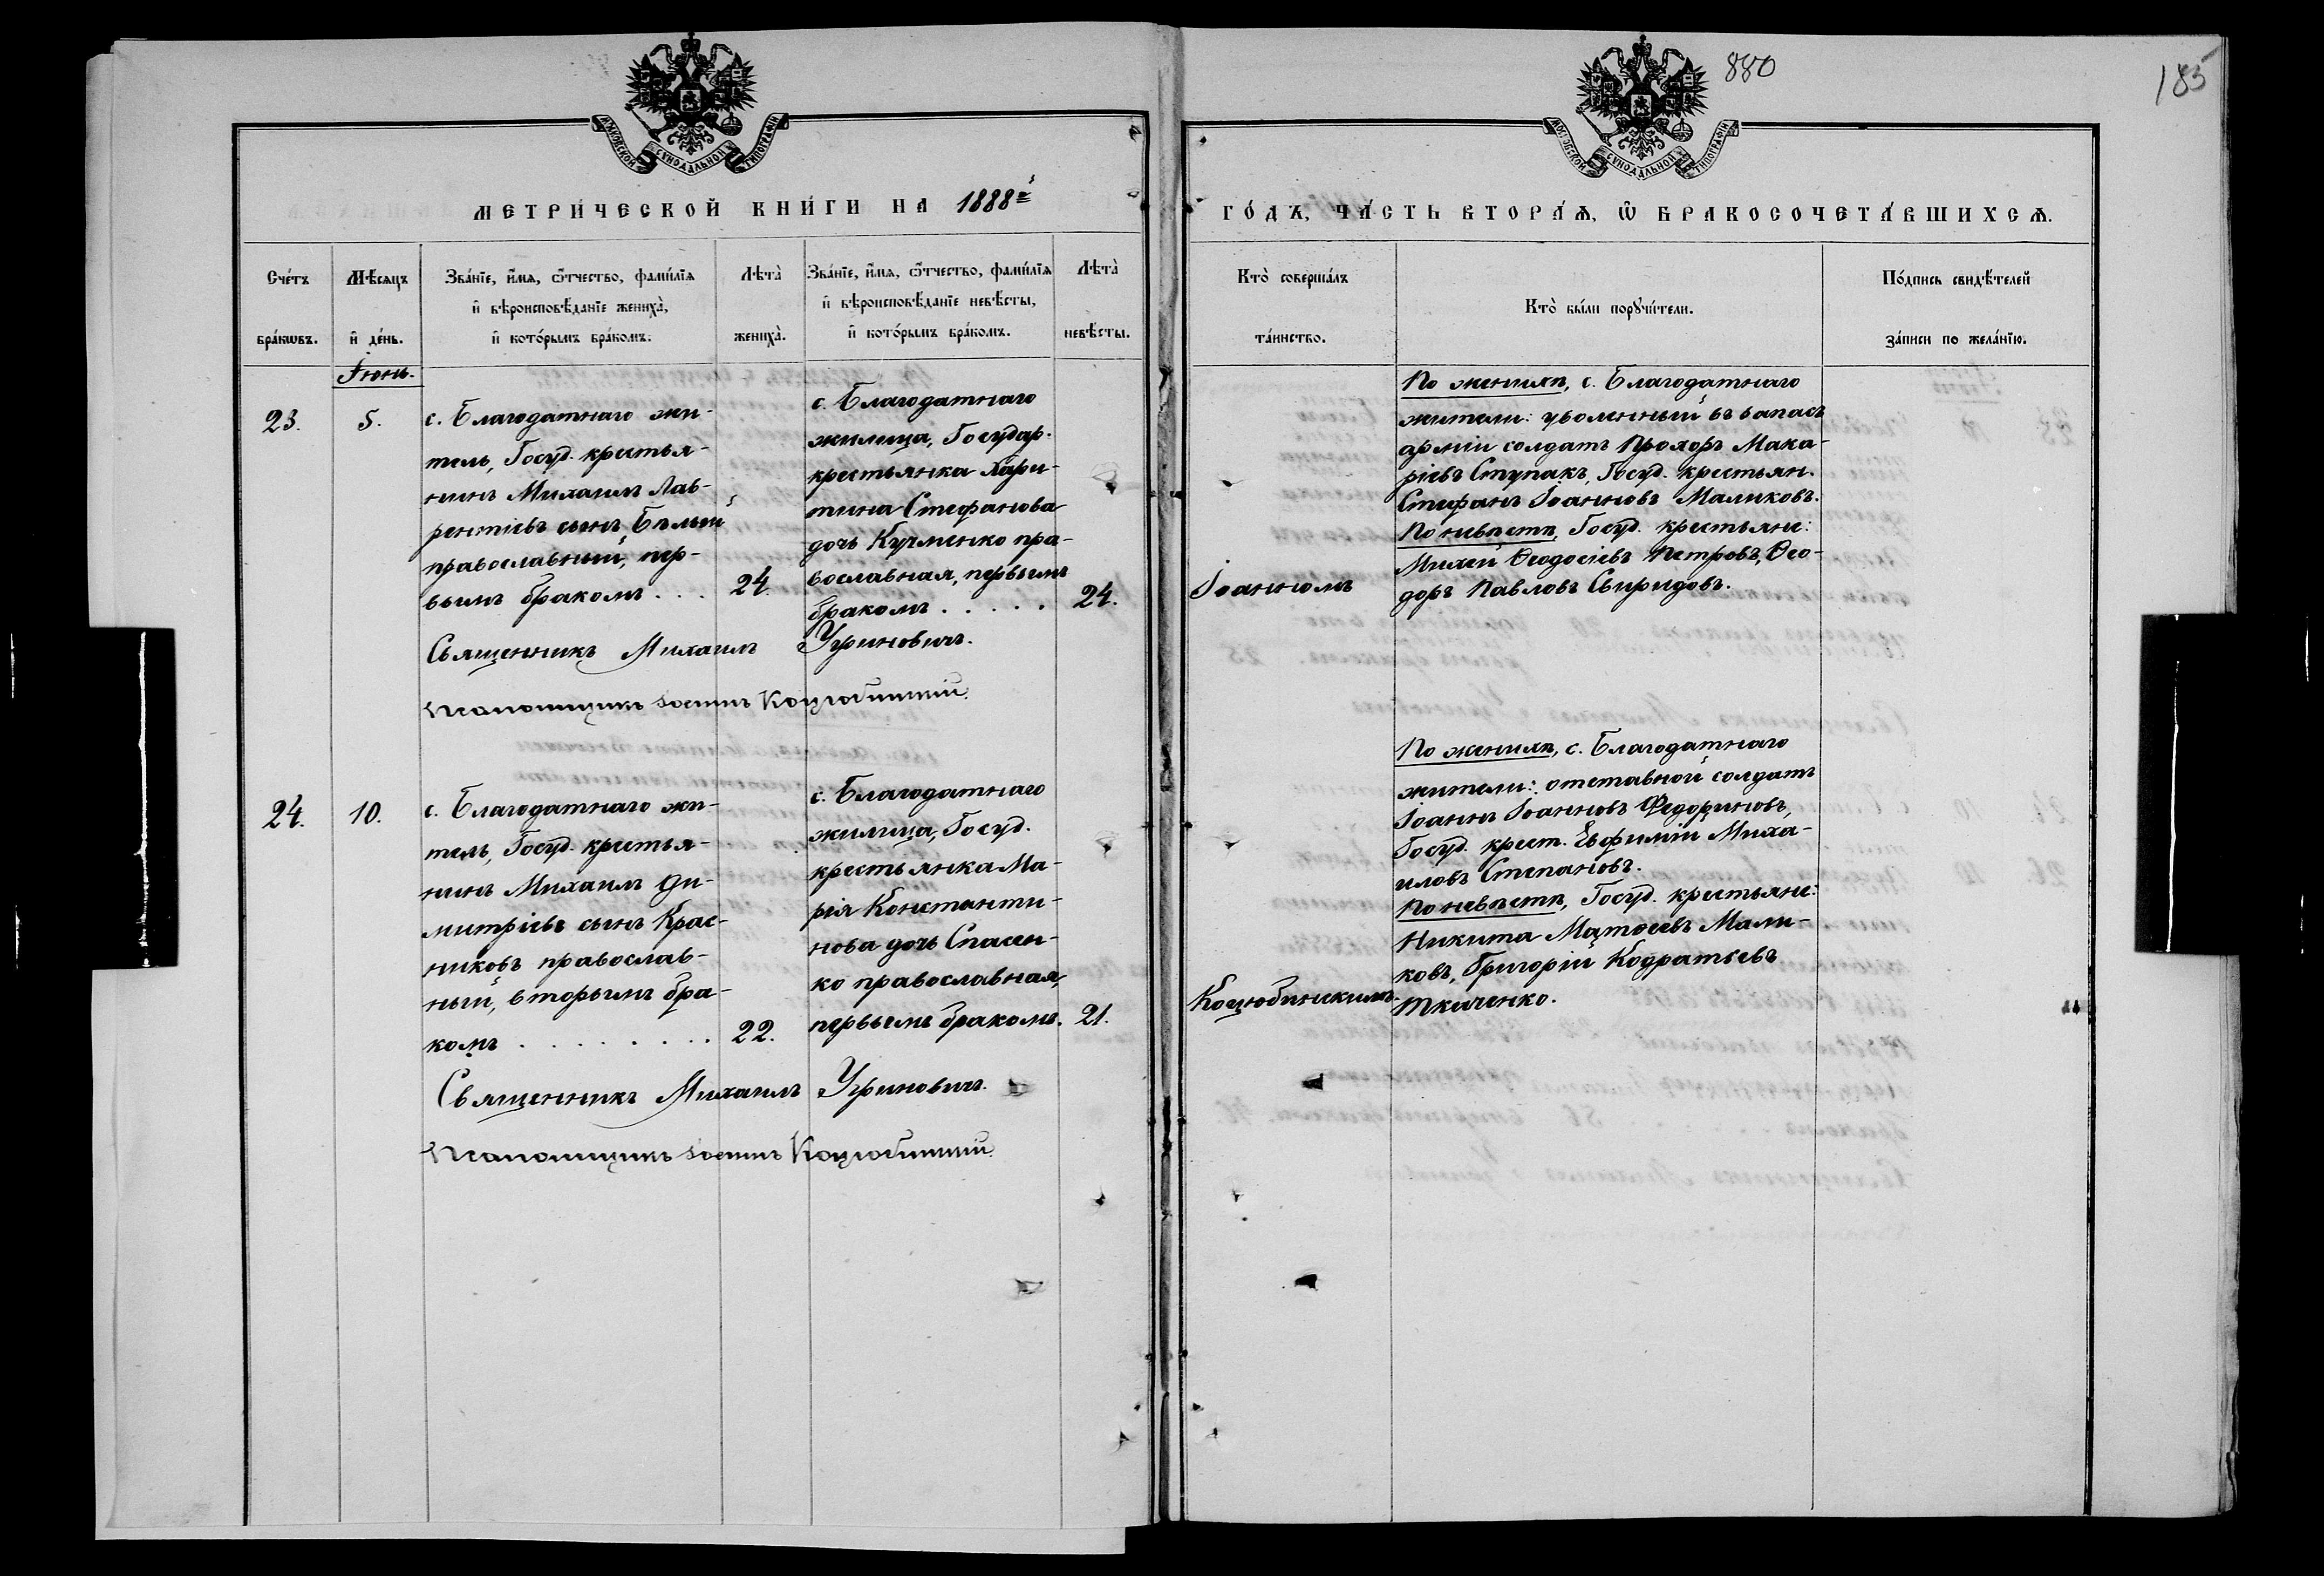 880
185
МОСКОВСКОЙ СѴНОДАЛЬНОЙ ТИПОГРАФІИ
МОСКОВСКОЙ СѴНОДАЛЬНОЙ ТИПОГРАФІИ
МЕТРИ́ЧЕСКОЙ КНИ́ГИ НА 1888й
ГО́ДЪ, ЧА́СТЬ ВТОРА́Ѧ, Ѽ БРАКОСОЧЕТА́ВШИХСѦ.
Сче́тъ
бра́кѡвъ.
Мѣ́сѧцъ
и҆ де́нь.
Зва́нїе, и҆́мѧ, ѻ҆́тчество, фами́лїѧ
и҆ вѣроисповѣ́данїе жениха̀,
и҆ кото́рымъ бра́комъ.
Лѣта̀
жениха̀.
Зва́нїе, и҆́мѧ, ѻ҆́тчество, фами́лїѧ
и҆ вѣроисповѣ́данїе невѣ́сты,
и҆ кото́рымъ бра́комъ.
Лѣта̀
невѣ́сты.
Кто̀ соверша́лъ
та́инство.
Кто̀ бы́ли порꙋчи́тели.
По́дпись свидѣ́телей
за́писи по жела́нїю.
Іюнь.
23.
5.
с. Благодатнаго жи-
тель, Госуд. крестья-
нинъ Михаилъ Лав-
рентіевъ сынъ Бѣлый
православный, пер-
вымъ бракомъ . . .
24.
с. Благодатнаго
жилица, Государ.
крестьянка Хари-
тина Стефанова
дочь Кучменко пра-
вославная, первымъ
бракомъ . . . . .
24.
Іоанномъ
По женихѣ, с. Благодатнаго
жители: уволенный въ запасъ
арміи солдатъ Прохоръ Мака-
ріевъ Ступакъ, Госуд. крестьян.
Стефанъ Іоанновъ Маликовъ.
По невѣстѣ, Госуд. крестьяне:
Михей Ѳеодосіевъ Петровъ, Ѳео-
доръ Павловъ Свиридовъ.
Священникъ Михаилъ Угриновичъ.
Псаломщикъ Іоаннъ Коцюбинскій.
24.
10.
с. Благодатнаго жи-
тель, Госуд. крестья-
нинъ Михаилъ Ди-
митріевъ сынъ Крас-
никовъ православ-
ный, вторымъ бра-
комъ . . . . . . . . .
22.
с. Благодатнаго
жилица, Госуд.
крестьянка Ма-
рія Константи-
нова дочь Спасен-
ко православная,
первымъ бракомъ.
21.
Коцюбинскимъ.
По женихѣ, с. Благодатнаго
жители: отставной солдатъ
Іоаннъ Іоанновъ
Госуд. крест. Евфимій Миха-
иловъ Степановъ.
По невѣстѣ, Госуд. крестьяне:
Никита Матѳеевъ Мали-
ковъ, Григорій Кодратьевъ
Ткаченко.
Священникъ Михаилъ Угриновичъ.
Псаломщикъ Іоаннъ Коцюбинскій.